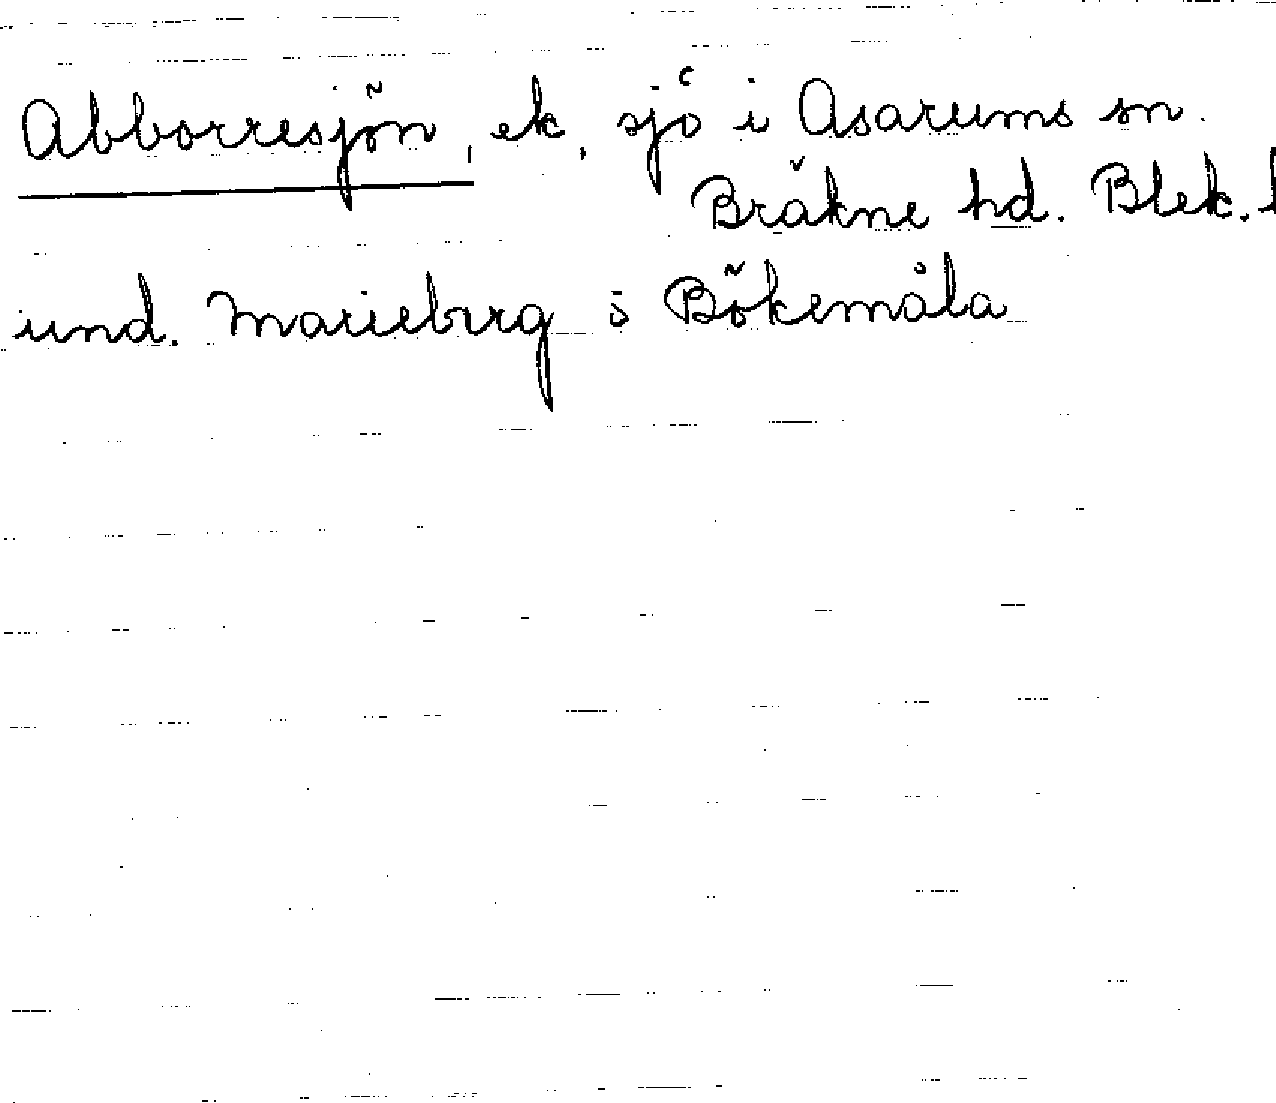 Abborresjön, ek, sjö i Asarums sn.
Bräkne hd. Blek. l
und. Marieberg o Bökemåla